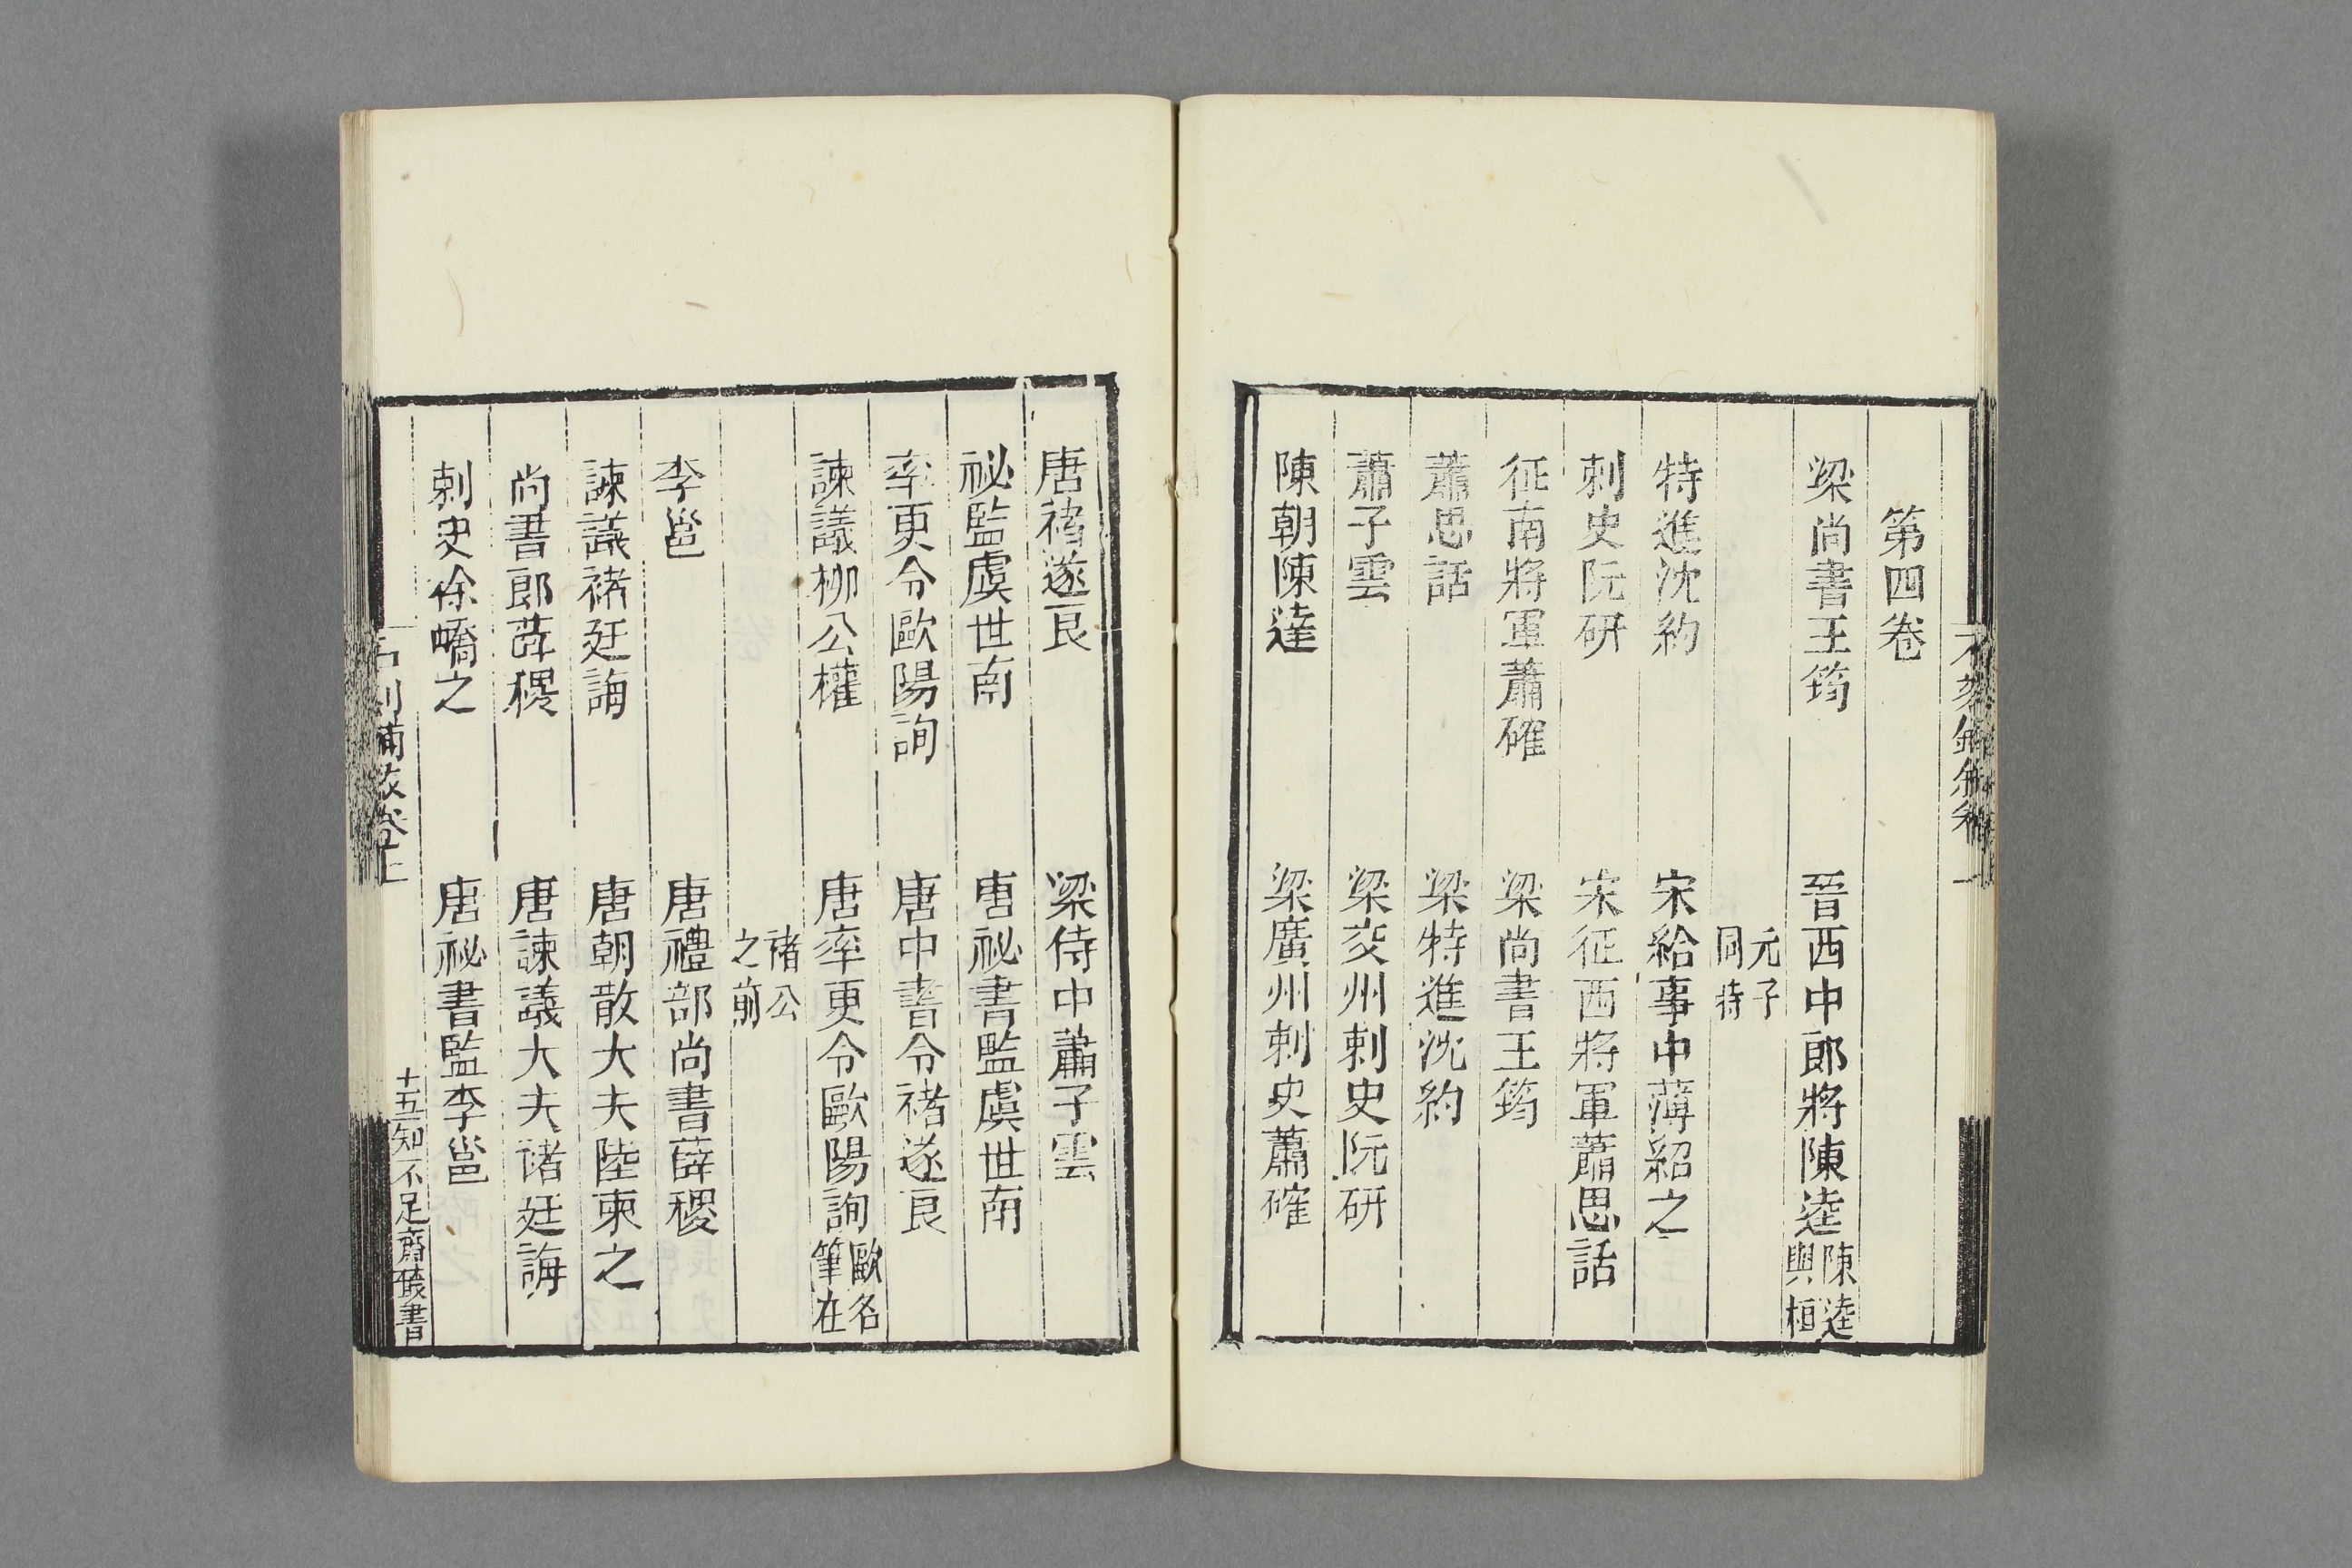 第四卷
梁尚書王筠　晉西中郎將陳逵陳逵與桓
元子同時
特進沈約　宋給事中薄紹之
刺史阮研　宋征西將軍蕭思話
征南將軍蕭確　梁尚書王筠
蕭思話　梁特進沈約
蕭子雲　梁交州刺史阮研
陳朝陳逵　梁廣州刺史蕭確
唐褚遂良　梁侍中蕭子雲
祕監虞世南　唐祕書監虞世南
率更令歐陽詢　唐中書令褚遂良
諫議柳公權　唐率更令歐陽詢歐名筆在
褚公之前
李邕　唐禮部尚書薛稷
諫議褚廷誨　唐朝散大夫陸柬之
尚書郎薛稷　唐諫議大夫褚廷誨
刺史徐嶠之　唐祕書監李邕
石刻鋪敘卷上
十五知不足齋叢書